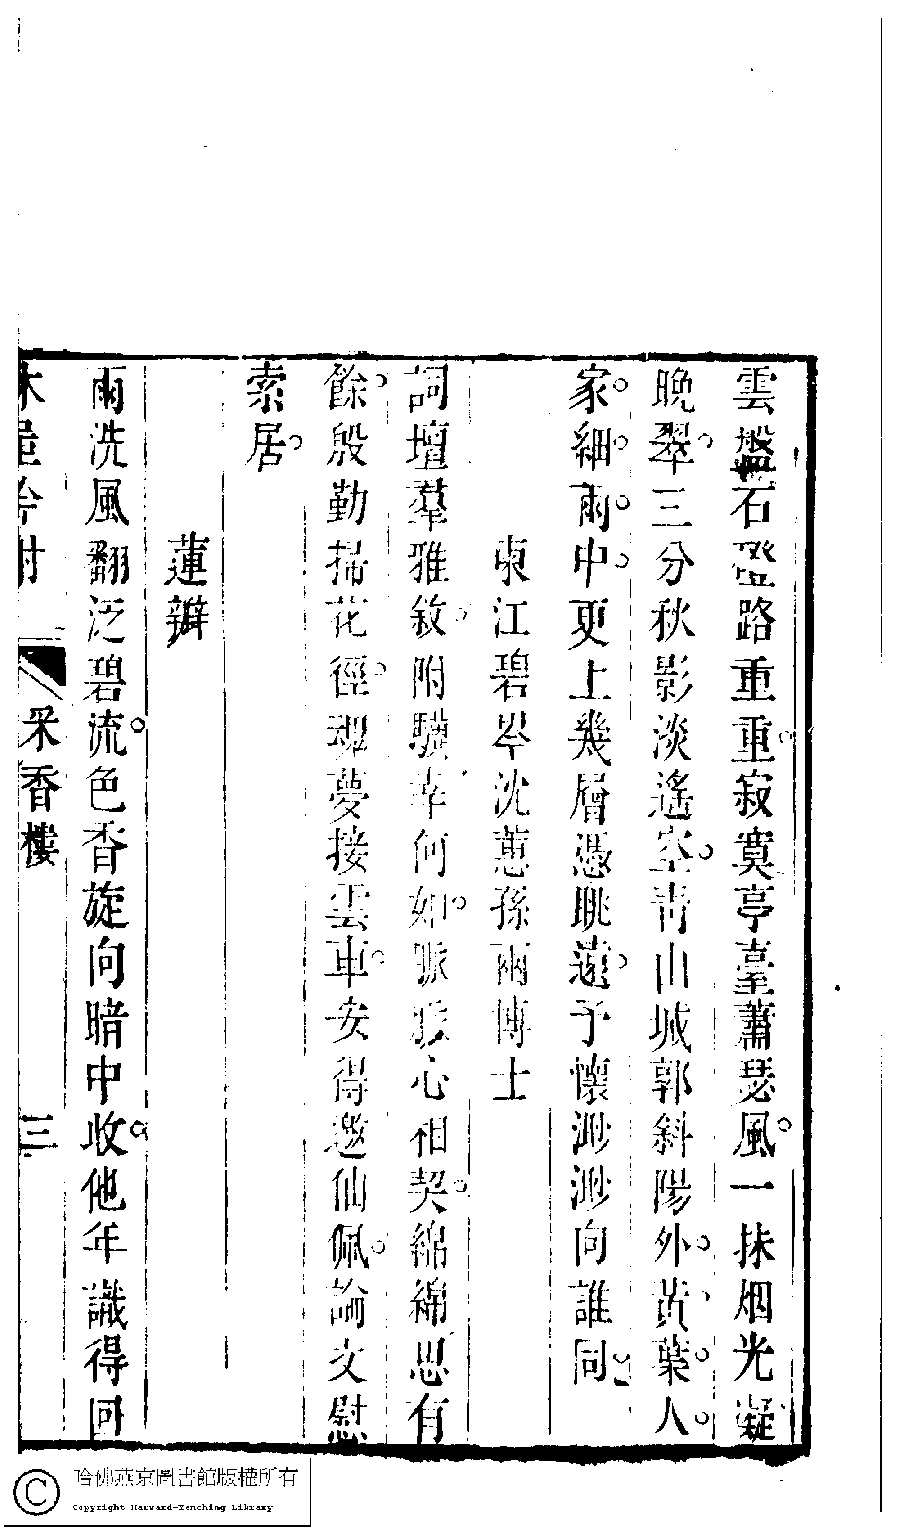 雲盤石磴路重重寂寞亭臺蕭瑟風一抹烟光凝
晚翠三分秋影淡遙空青山城郭斜陽外黃葉人
家細雨中更上幾層憑眺遠予懷渺渺向誰同
東江碧岑沈蕙孫兩博士
詞壇羣雅敘附驥幸何如脈脈心相契綿綿思有
餘殷勤掃花徑魂夢接雲車安得邀仙佩論文慰
索居
蓮瓣
雨洗風翻泛碧流色香旋向暗中收他年識得回
采香樓
三
哈佛燕京圖書館版權所有
Copyright Harvard-Yenching Library